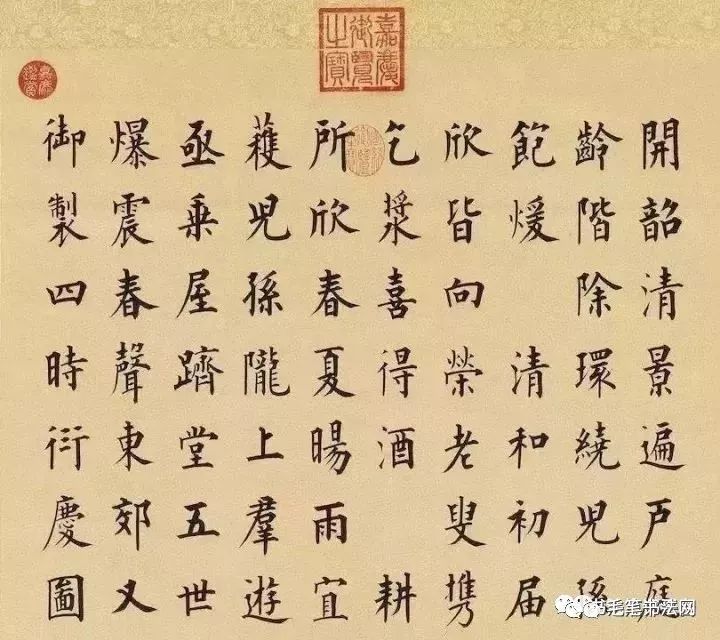 嘉慶御覽之寶
嘉慶鑑賞
開韶清景遍戸庭
齡階除環繞兒孫
飽煖 清和初届
欣皆向榮老叟携
乞漿喜得酒 耕
所欣春夏暘雨宜
穫兒孫隴上羣遊
亟乗屋躋堂五世
爆震春聲東郊又
御製四時衍慶圖
毛笔书法网